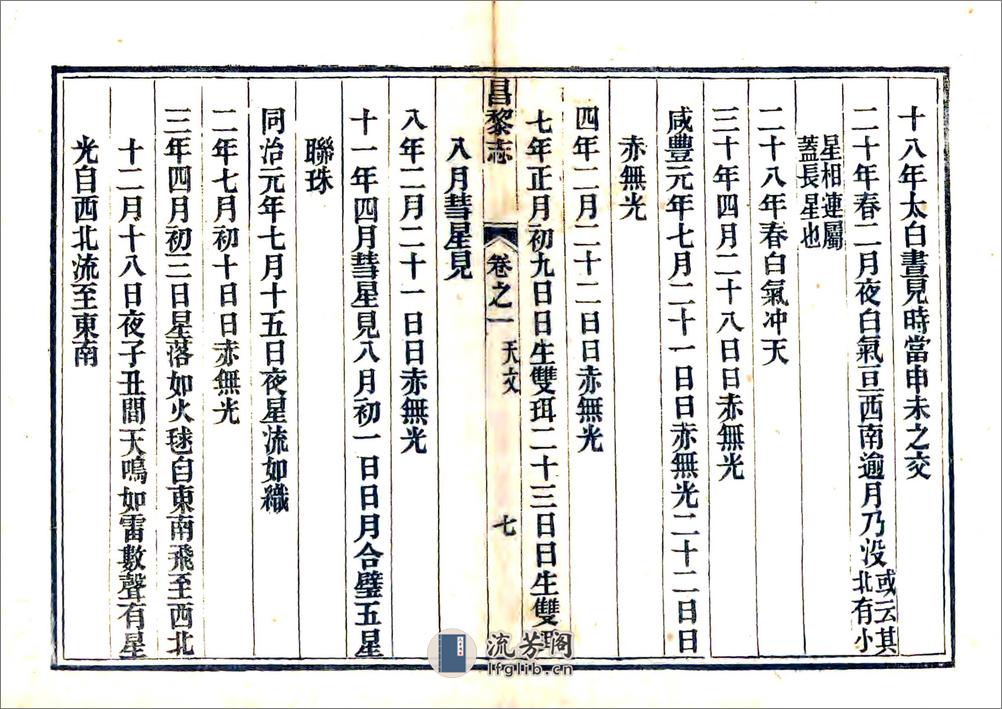 十八年太白晝見時當申未之交
二十年春二月夜白氣亘西南逾月乃没或云其北有小
星相連屬蓋長星也
二十八年春白氣冲天
三十年四月二十八日日赤無光
咸豐元年七月二十一日日赤無光二十二日日
赤無光
四年二月二十二日日赤無光
七年正月初九日日生雙珥二十三日日生雙
昌黎志 卷之一 天文 七
八月彗星見
八年二月二十一日日赤無光
十一年四月彗星見八月初一日日月合璧五星
聯珠
同治元年七月十五日夜星流如織
二年七月初十日日赤無光
三年四月初三日星落如火毬自東南飛至西北
十二月十八日夜子丑間天鳴如雷數聲有星
光自西北流至東南
流芳阁
lfglib.cn